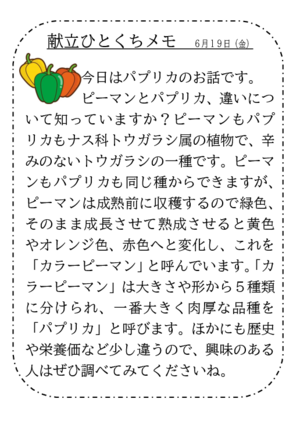 献立ひとくちメモ　6月19日（金）
今日はパプリカのお話です。
ピーマンとパプリカ、違いにつ
いて知っていますか？ピーマンもパプ
リカもナス科トウガラシ属の植物で、辛
みのないトウガラシの一種です。ピーマ
ンもパプリカも同じ種からできますが、
ピーマンは成熟前に収穫するので緑色、
そのまま成長させて熟成させると黄色
やオレンジ色、赤色へと変化し、これを
「カラーピーマン」と呼んでいます。「カ
ラーピーマン」は大きさや形から５種類
に分けられ、一番大きく肉厚な品種を
「パプリカ」と呼びます。ほかにも歴史
や栄養価など少し違うので、興味のある
人はぜひ調べてみてくださいね。